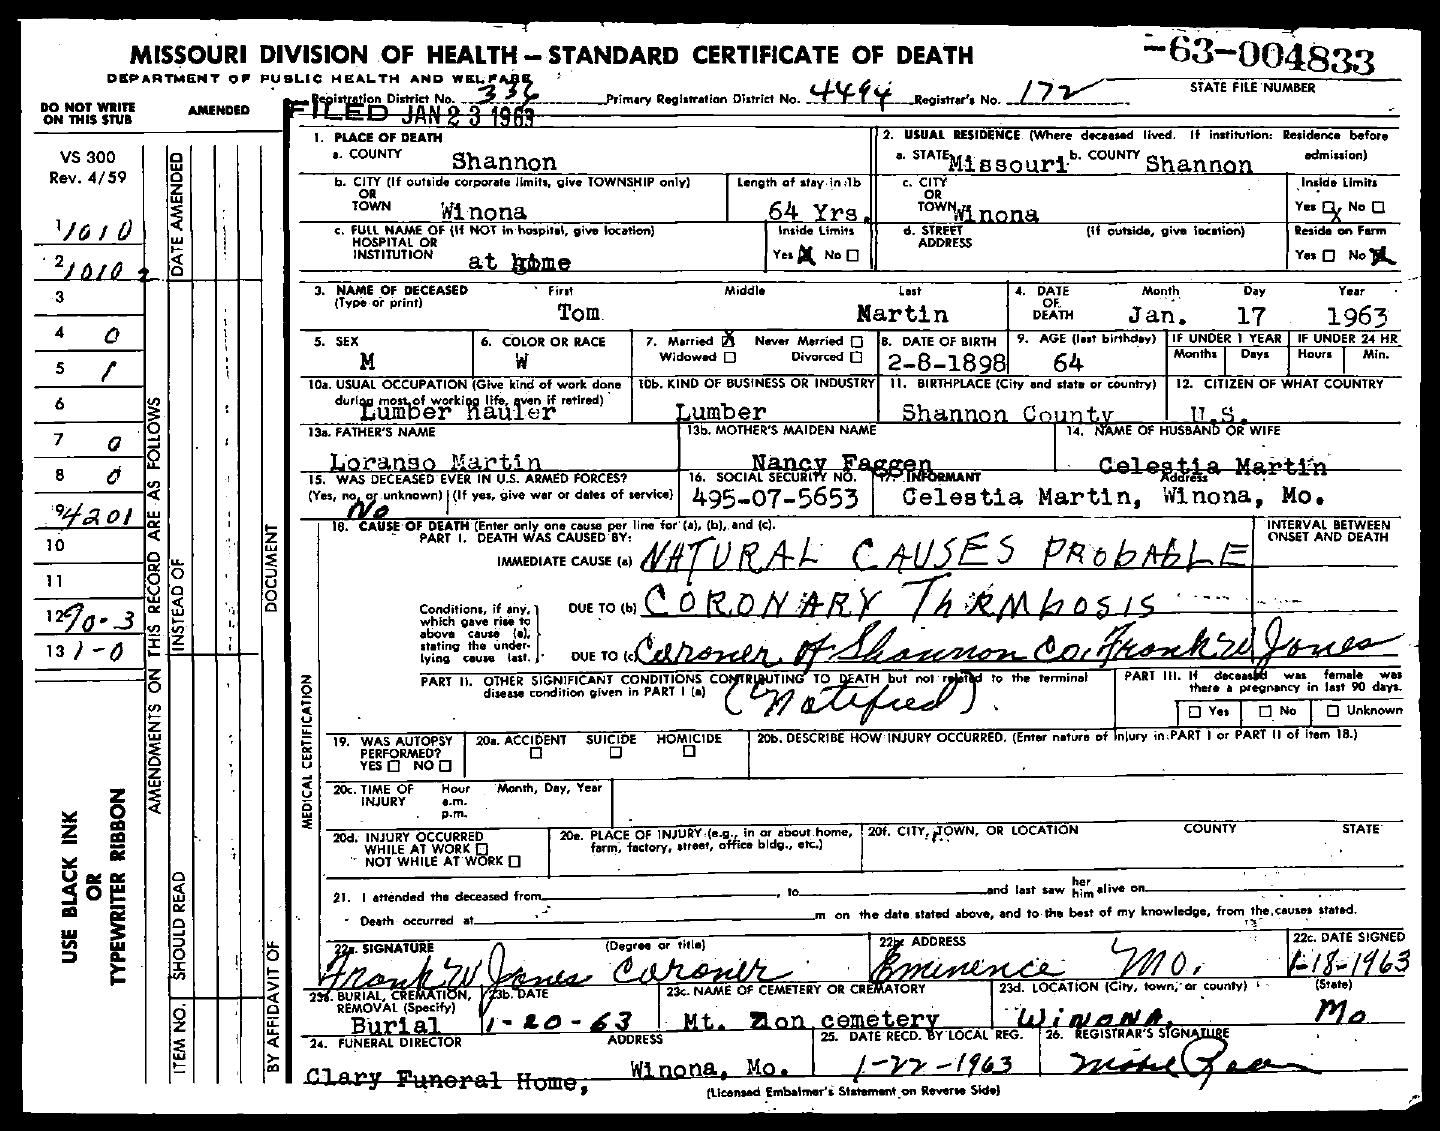 MISSOURI DIVISION OF HEALTH — STANDARD CERTIFICATE OF DEATH
-63-004833
DEPARTMENT OF PUBLIC HEALTH AND WELFARE
STATE FILE NUMBER
Registration District No. 336 Primary Registration District No. 4494 Registrar's No. 172
DO NOT WRITE ON THIS STUB
AMENDED
FILED JAN 23 1963
VS 300
Rev. 4/59
1 1010
2 1010 2
3
4 0
5 1
6
7 0
8 0
9 4201
10
11
12 90-3
13 1-0
USE BLACK INK
OR
TYPEWRITER RIBBON
AMENDMENTS ON THIS RECORD ARE AS FOLLOWS
DATE AMENDED
INSTEAD OF
SHOULD READ
ITEM NO.
DOCUMENT
BY AFFIDAVIT OF
MEDICAL CERTIFICATION
1. PLACE OF DEATH
a. COUNTY Shannon
2. USUAL RESIDENCE (Where deceased lived. If institution: Residence before admission)
a. STATE Missouri b. COUNTY Shannon
b. CITY (If outside corporate limits, give TOWNSHIP only) OR TOWN Winona
Length of stay in 1b 64 Yrs.
c. CITY OR TOWN Winona
Inside Limits Yes X No
c. FULL NAME OF (If NOT in hospital, give location) HOSPITAL OR INSTITUTION at home
Inside Limits Yes X No
d. STREET ADDRESS (If outside, give location)
Reside on Farm Yes No X
3. NAME OF DECEASED (Type or print) First Middle Last
Tom Martin
4. DATE OF DEATH Month Day Year
Jan. 17 1963
5. SEX M
6. COLOR OR RACE W
7. Married X Never Married Widowed Divorced
8. DATE OF BIRTH 2-8-1898
9. AGE (last birthday) 64
IF UNDER 1 YEAR Months Days
IF UNDER 24 HR Hours Min.
10a. USUAL OCCUPATION (Give kind of work done during most of working life, even if retired) Lumber Hauler
10b. KIND OF BUSINESS OR INDUSTRY Lumber
11. BIRTHPLACE (City and state or country) Shannon County
12. CITIZEN OF WHAT COUNTRY U.S.
13a. FATHER'S NAME Loranso Martin
13b. MOTHER'S MAIDEN NAME Nancy Faggen
14. NAME OF HUSBAND OR WIFE Celestia Martin
15. WAS DECEASED EVER IN U.S. ARMED FORCES? (Yes, no, or unknown) (If yes, give war or dates of service) No
16. SOCIAL SECURITY NO. 495-07-5653
17. INFORMANT Address Celestia Martin, Winona, Mo.
18. CAUSE OF DEATH (Enter only one cause per line for (a), (b), and (c).
PART I. DEATH WAS CAUSED BY:
INTERVAL BETWEEN ONSET AND DEATH
IMMEDIATE CAUSE (a) NATURAL CAUSES PROBABLE
Conditions, if any, which gave rise to above cause (a), stating the underlying cause last.
DUE TO (b) CORONARY ThRMbOSIS
DUE TO (c) Coroner of Shannon Co. Frank W Jones
PART II. OTHER SIGNIFICANT CONDITIONS CONTRIBUTING TO DEATH but not related to the terminal disease condition given in PART I (a)
(Notified).
PART III. If deceased was female was there a pregnancy in last 90 days.
Yes No Unknown
19. WAS AUTOPSY PERFORMED? YES NO
20a. ACCIDENT SUICIDE HOMICIDE
20b. DESCRIBE HOW INJURY OCCURRED. (Enter nature of injury in PART I or PART II of item 18.)
20c. TIME OF INJURY Hour a.m. p.m. Month, Day, Year
20d. INJURY OCCURRED WHILE AT WORK NOT WHILE AT WORK
20e. PLACE OF INJURY (e.g., in or about home, farm, factory, street, office bldg., etc.)
20f. CITY, TOWN, OR LOCATION COUNTY STATE
21. I attended the deceased from , to and last saw her him alive on
Death occurred at m on the date stated above, and to the best of my knowledge, from the causes stated.
22a. SIGNATURE (Degree or title) Frank W Jones Coroner
22b. ADDRESS Eminence Mo.
22c. DATE SIGNED 1-18-1963
23a. BURIAL, CREMATION, REMOVAL (Specify) Burial
23b. DATE 1-20-63
23c. NAME OF CEMETERY OR CREMATORY Mt. Zion cemetery
23d. LOCATION (City, town, or county) (State) WINONA, Mo
24. FUNERAL DIRECTOR ADDRESS Clary Funeral Home, Winona, Mo.
25. DATE RECD. BY LOCAL REG. 1-22-1963
26. REGISTRAR'S SIGNATURE
(Licensed Embalmer's Statement on Reverse Side)